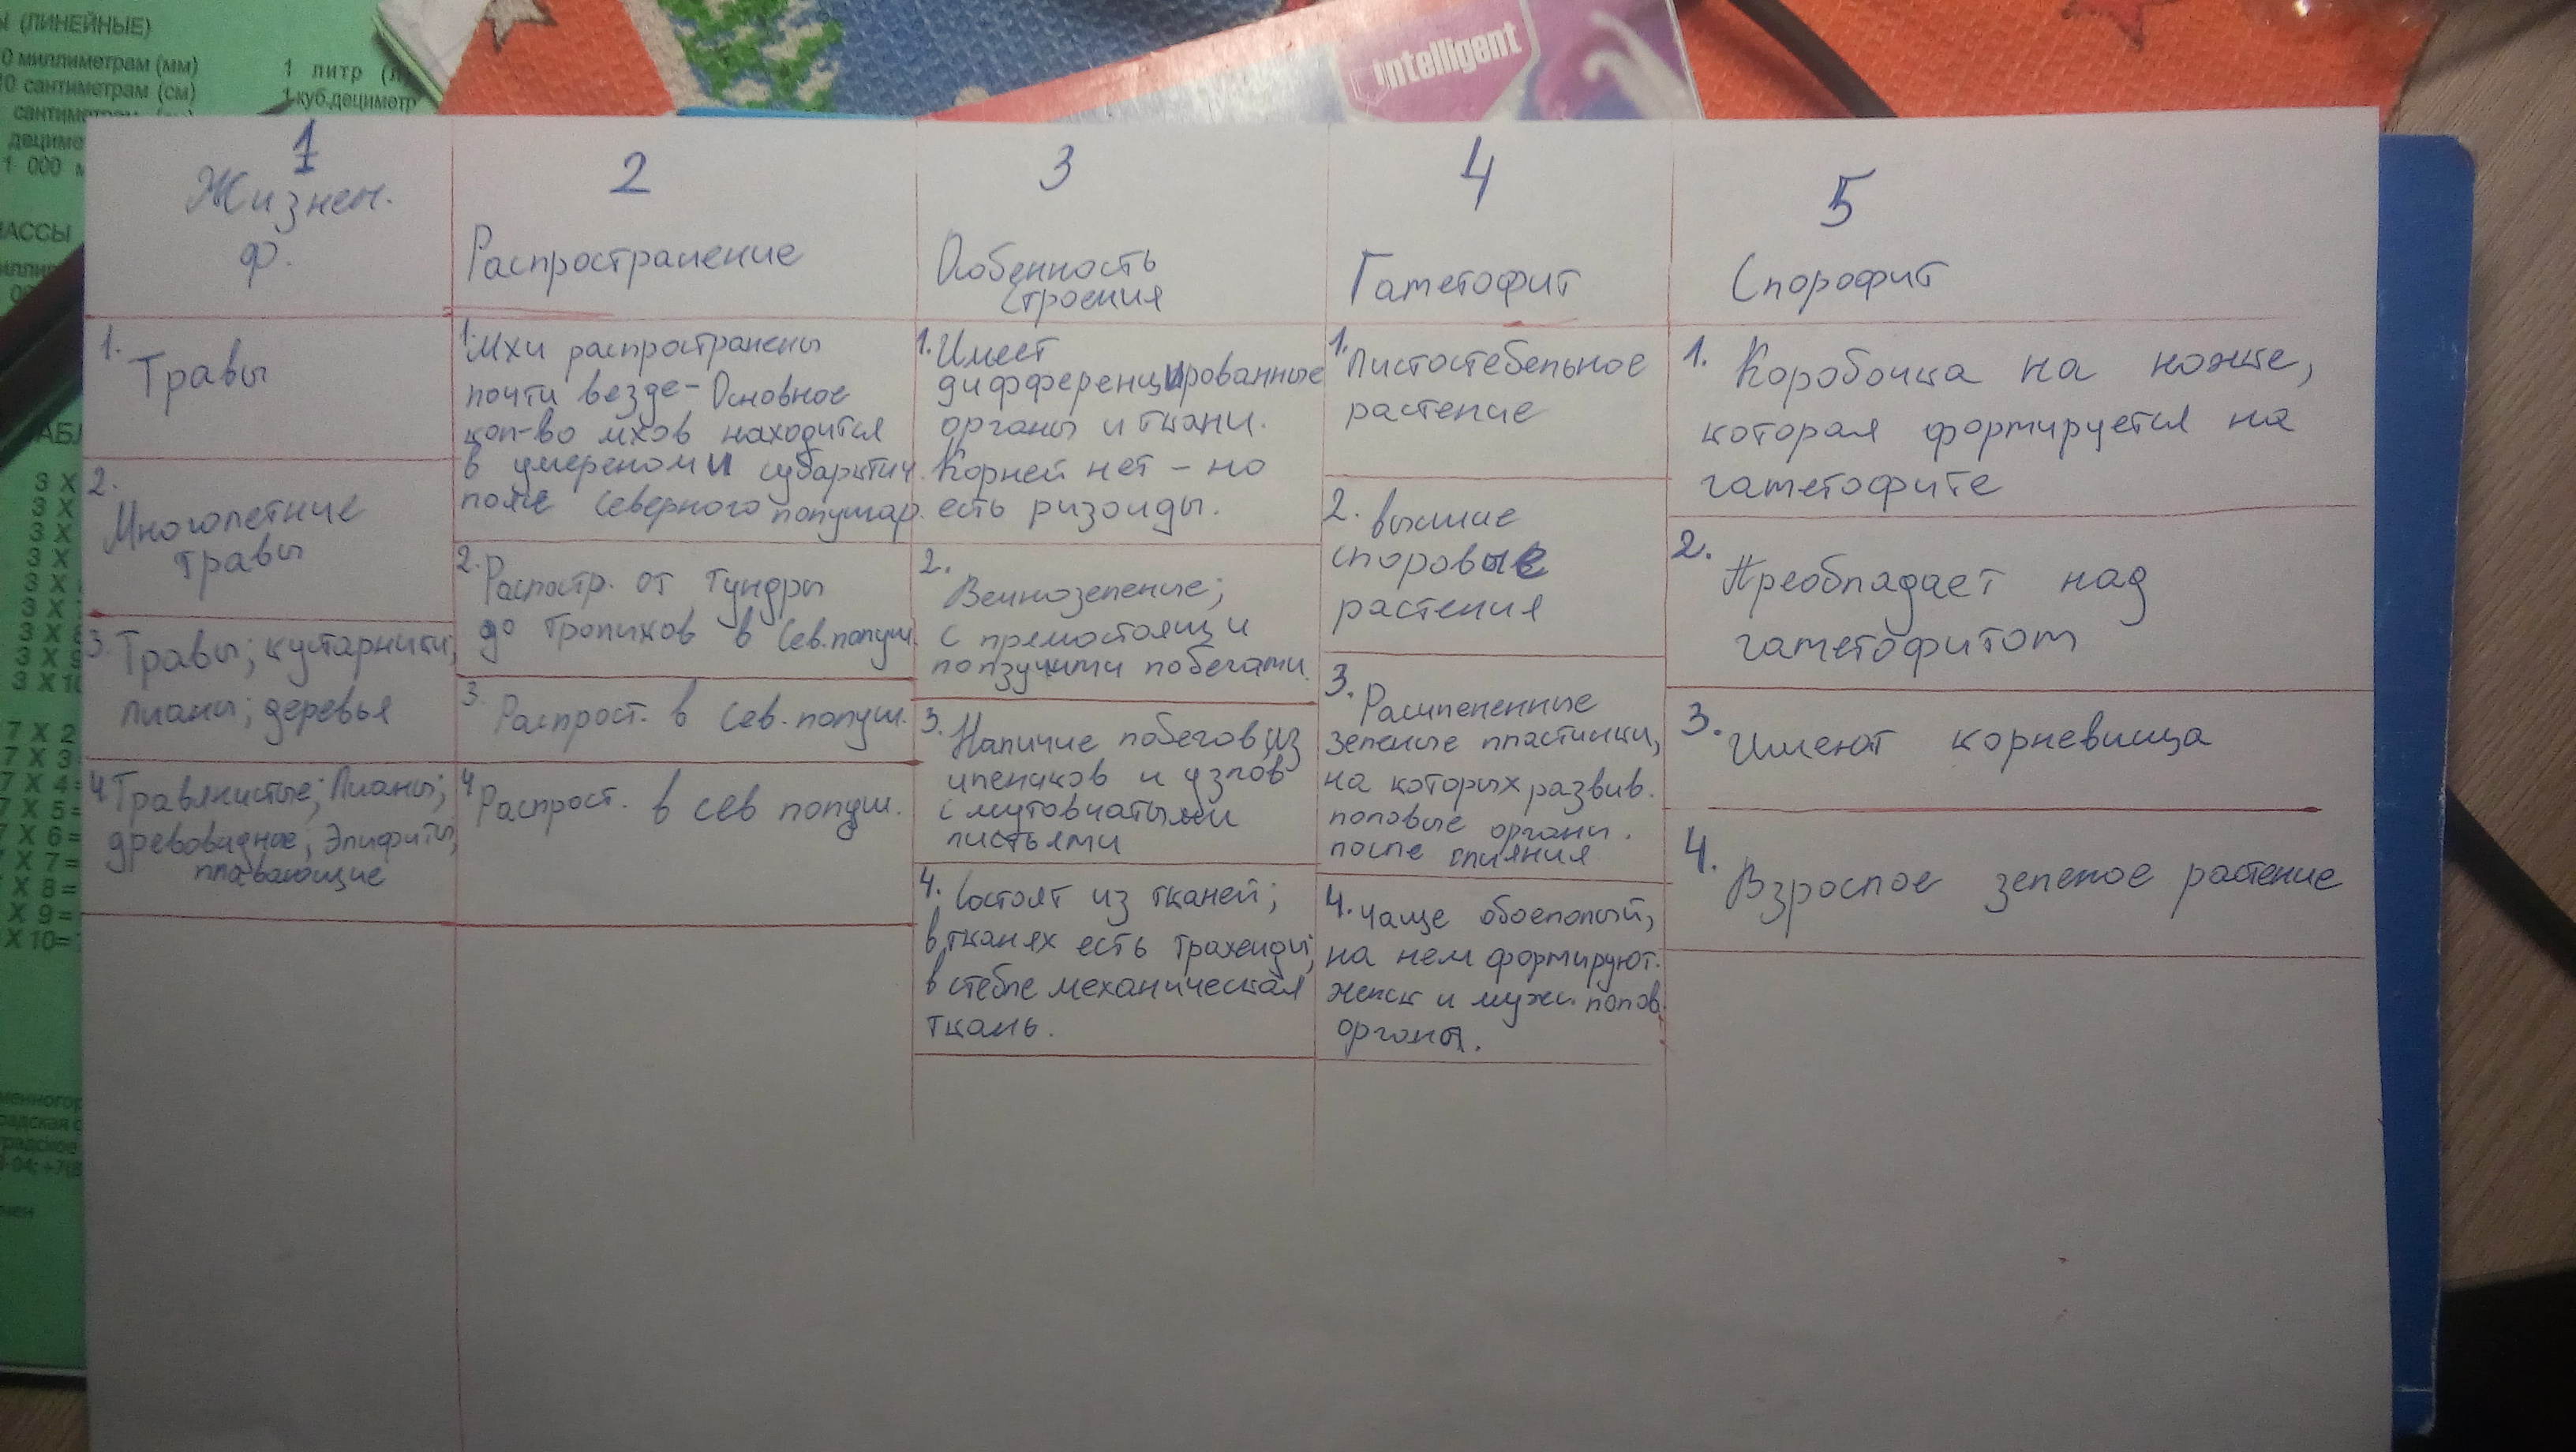 Ы (ЛИНЕЙНЫЕ)
0 миллиметрам (мм)
10 сантиметрам (см)
сантиметрам
дециме
1 000 м
1 литр (л)
1 куб.дециметр
МАССЫ
intelligent
3 X
3 X
3 X
3 X
3 X
3 X
3 X 8
3 X 9
3 X 10
7 X 2
7 X 3
7 X 4=
7 X 5=
7 X 6=
X 7=
X 8=
X 9=
X 10=
1
Жизнен.
Ф.
2
Распространение
3
Особенность
Строения
4
Гаметофит
5
Спорофит
1. Травы
2.
Многолетние
травы
3. Травы; кустарники;
лианы; деревья
4 Травянистые; Лианы;
древовидное; Эпифиты;
плавающие
1. Мхи распространены
почти везде - Основное
кол-во мхов находится
в умереном и субарктич.
поясе Северного полушар.
2. Распостр. от тундры
до тропиков в Сев. полуш.
3. Распрост. в Сев. полуш.
4 Распрост. в сев полуш.
1. Имеет
дифференцированные
органы и ткани.
Корней нет - но
есть ризоиды.
2.
Вечнозеление;
с прямостоящ и
ползучими побегами.
3. Наличие побегов, из
члеников и узлов
с мутовчатыми
листьями
4. Состоят из тканей;
в тканях есть трахеиды;
в стебле механическая
ткань.
1. Листостебельное
растение
2. высшие
споровые
растения
3. Расчлененные
зеленые пластинки,
на которых развив.
половые органы.
после слияния
4. чаще обоеполый,
на нем формируют.
женск и мужс. полов.
органы.
1. Коробочка на ножке,
которая формируется на
гаметофите
2. Преобладает над
гаметофитом
3. Имеют корневища
4. Взрослое зеленое растение